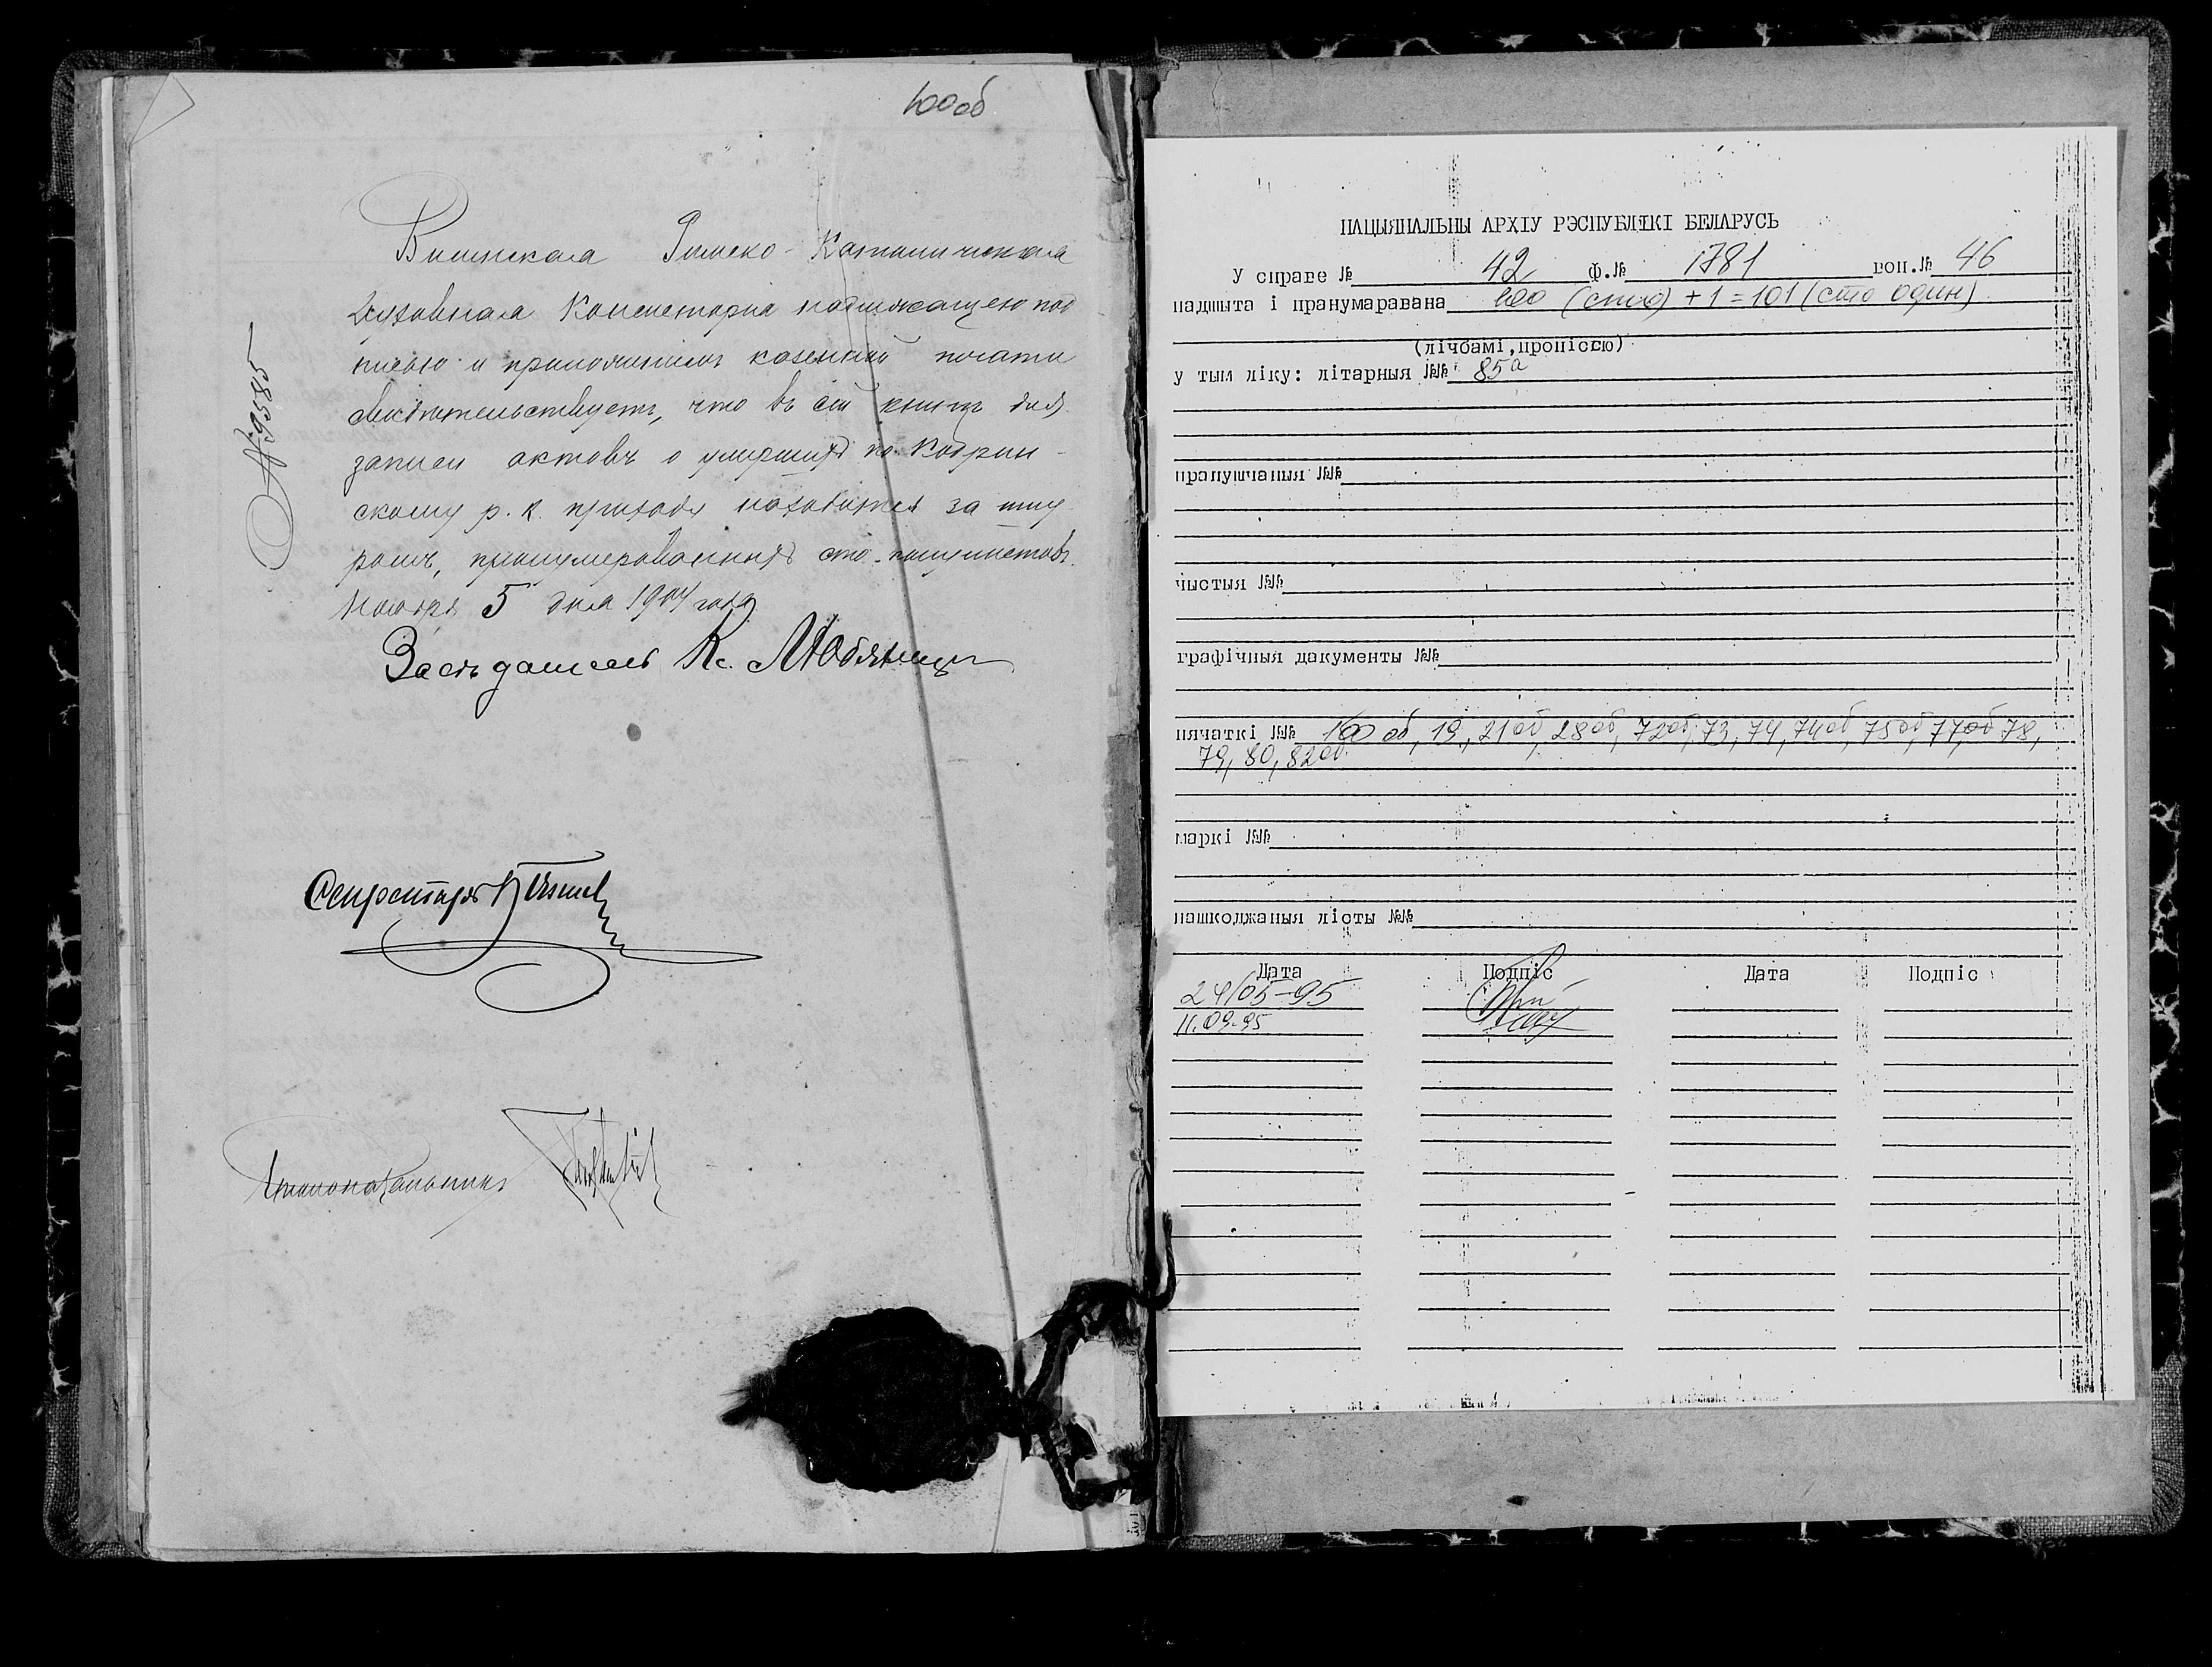 100об
№ 9585
Виленская Римско-Католическая
Духовная Консисторія надлежащею под
писью и приложеніемъ казенной печати
свидѣтельствуетъ, что въ сей книгѣ для
записи актовъ о умершихъ по Кобрин-
скому р. к. приходу находится за шну
ромъ, пронумерованныхъ сто полулистовъ.
Ноября 5 дня 1904 года
Засѣдатель К.
Секретарь
Столоначальникъ
НАЦЫЯНАЛЬНЫ АРХІУ РЭСПУБЛІКІ БЕЛАРУСЬ
У справе № 42 ф.№ 1781 воп.№ 46
падшыта і пранумаравана 100 (сто) + 1 = 101 (сто один)
(лічбамі,пропіссю)
у тым ліку: літарныя №№ 85а
прапушчаныя №№
чыстыя №№
графічныя дакументы №№
пячаткі №№ 100 об, 19, 21об, 28об, 72об, 73, 74, 74об, 75об, 77об, 78,
79, 80, 82об.
маркі №№
пашкоджаныя лісты №№
Дата Подпіс Дата Подпіс
24/05-95
11.09.95